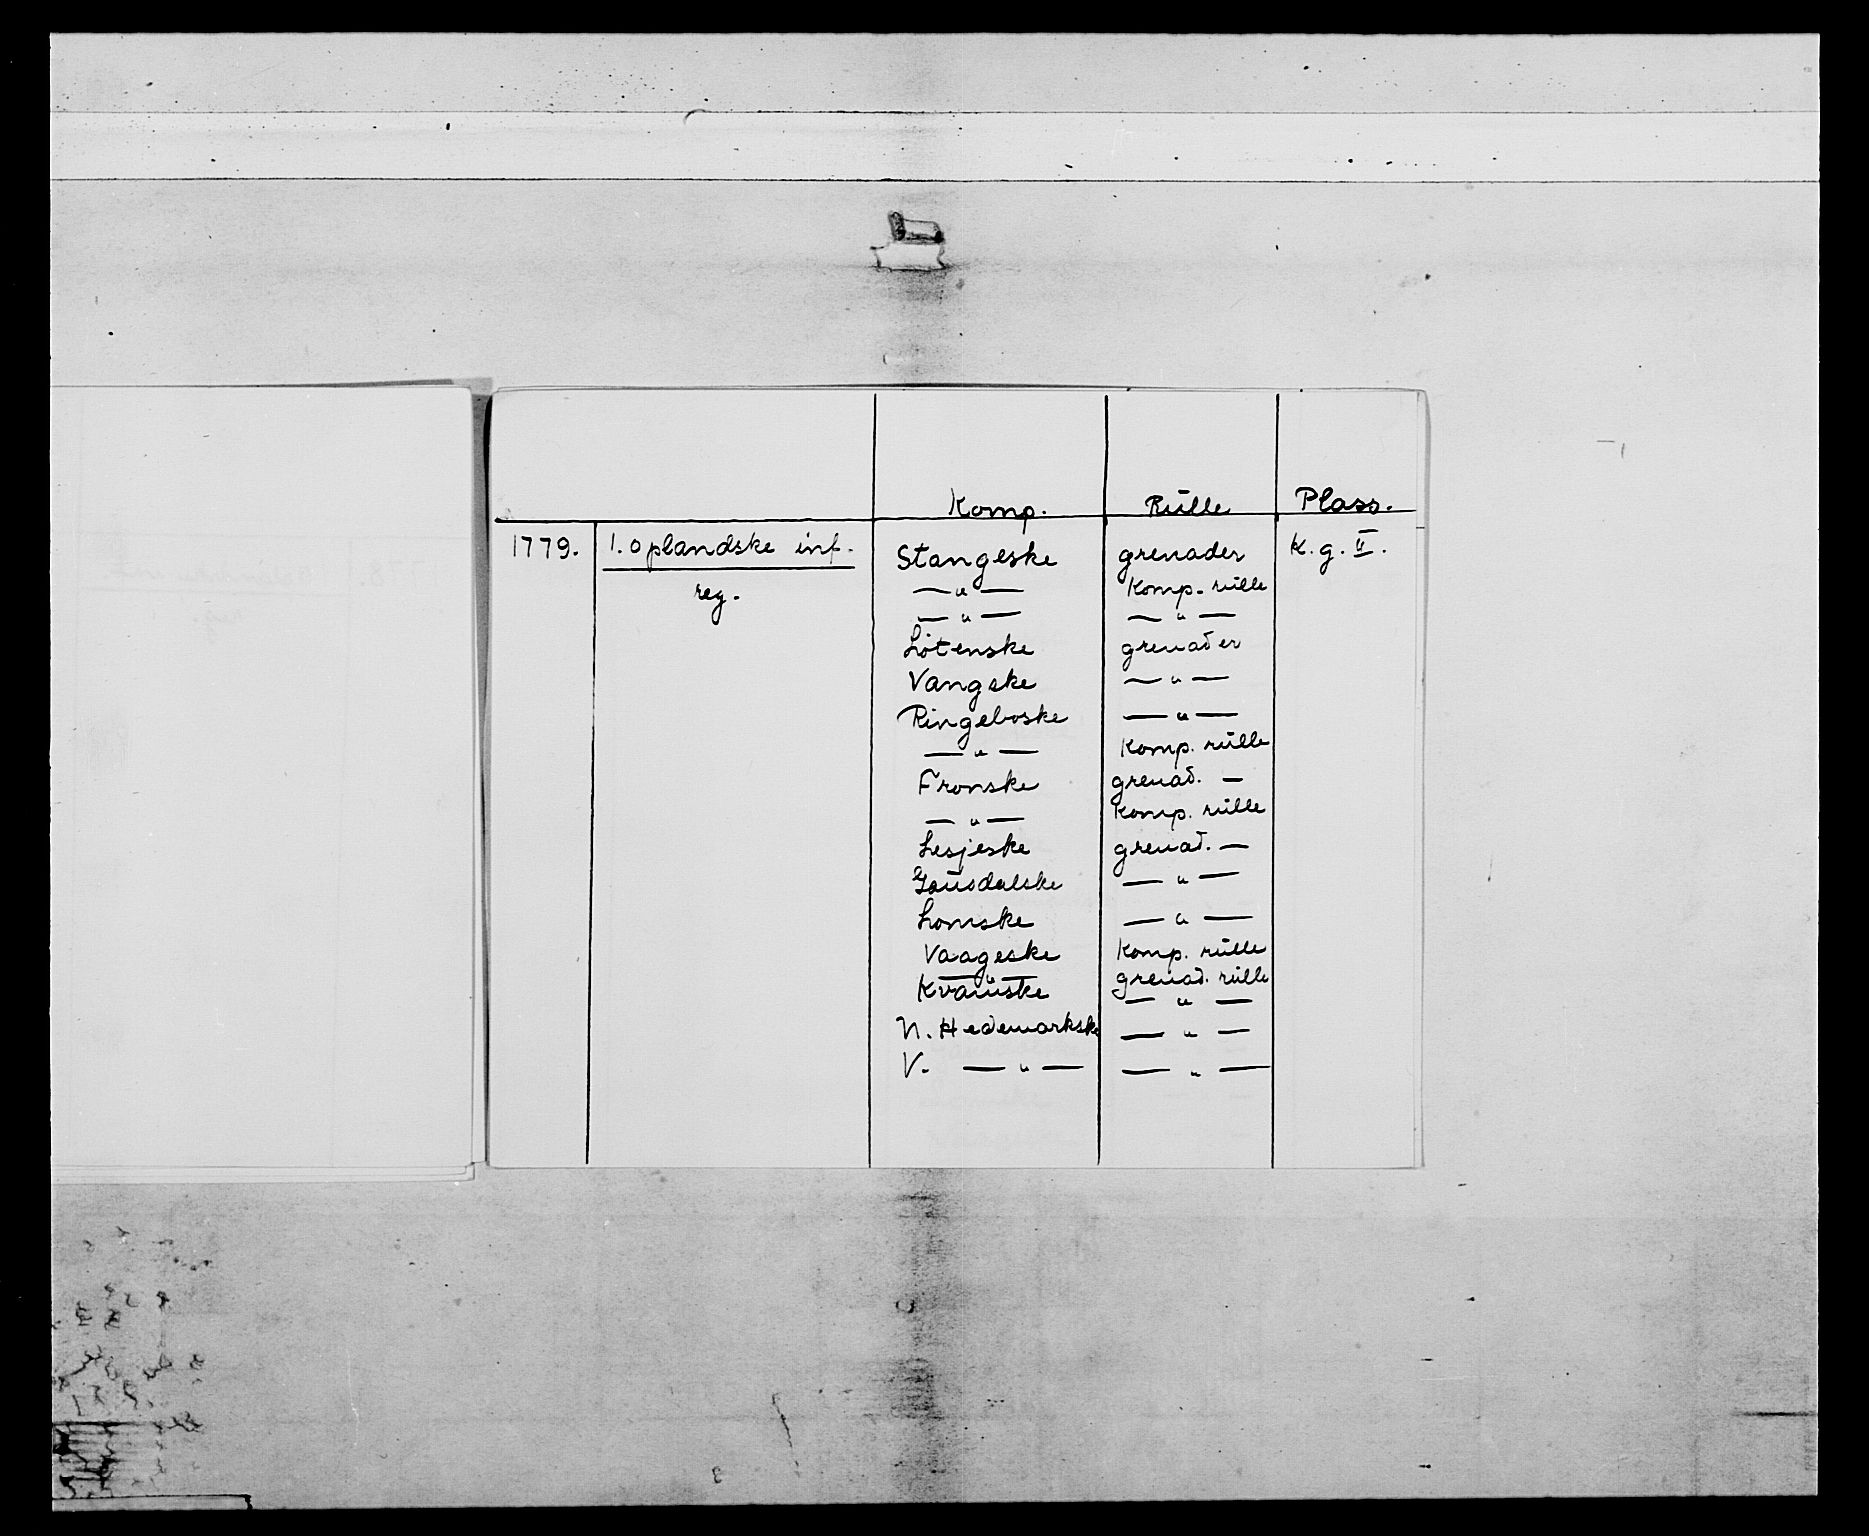 Komp. Rulle Plass.
1779. 1. oplandske inf. Stangeske grenader K. g. II.
reg. — " — Komp. rulle
— " — — " —
Løtenske grenader
Vangske — " —
Ringeboske — " —
— " — Komp. rulle
Fronske grenad. —
— " — Komp. rulle
Lesjeske grenad. —
Gausdalske — " —
Lomske — " —
Vaageske Komp. rulle
— " — grenad. rulle
Kvamske — " —
N. Hedemarkske — " —
V. — " — — " —